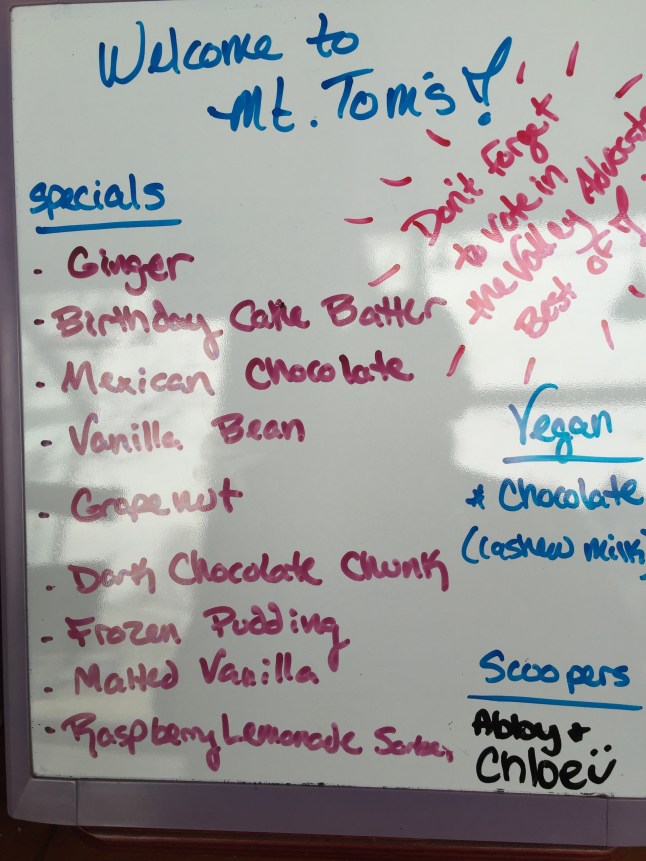 Welcome to
Mt. Tom's!
Don't forget
to vote in
the Valley Advocate
Best of!
Specials
· Ginger
· Birthday Cake Batter
· Mexican Chocolate
· Vanilla Bean
· Grapenut
· Dark Chocolate Chunk
· Frozen Pudding
· Malted Vanilla
· Raspberry Lemonade Sorbet
Vegan
* Chocolate
(cashew milk)
Scoopers
Abby +
Chloe